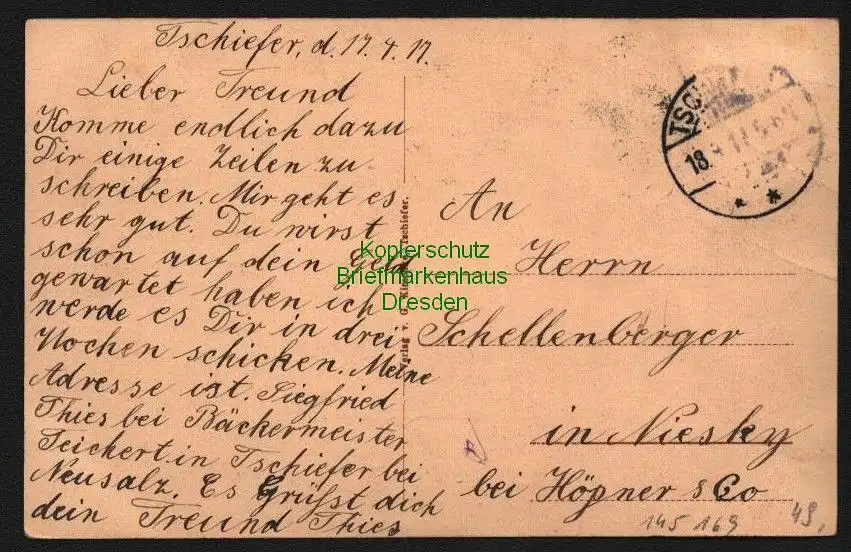 Tschiefer, d. 17.4.17.
Lieber Freund
Komme endlich dazu
Dir einige Zeilen zu
schreiben. Mir geht es
sehr gut. Du wirst
schon auf dein Geld
gewartet haben ich
werde es Dir in drei
Wochen schicken. Meine
Adresse ist. Siegfried
Thies bei Bäckermeister
Teichert in Tschiefer bei
Neusalz. Es Grüßt dich
dein Freund Thies
Verlag v. G. Tschiefer.
TSCH
18.
An
Herrn
Schellenberger
in Niesky
bei Höpner & Co
145 169
49,
Kopierschutz
Briefmarkenhaus
Dresden